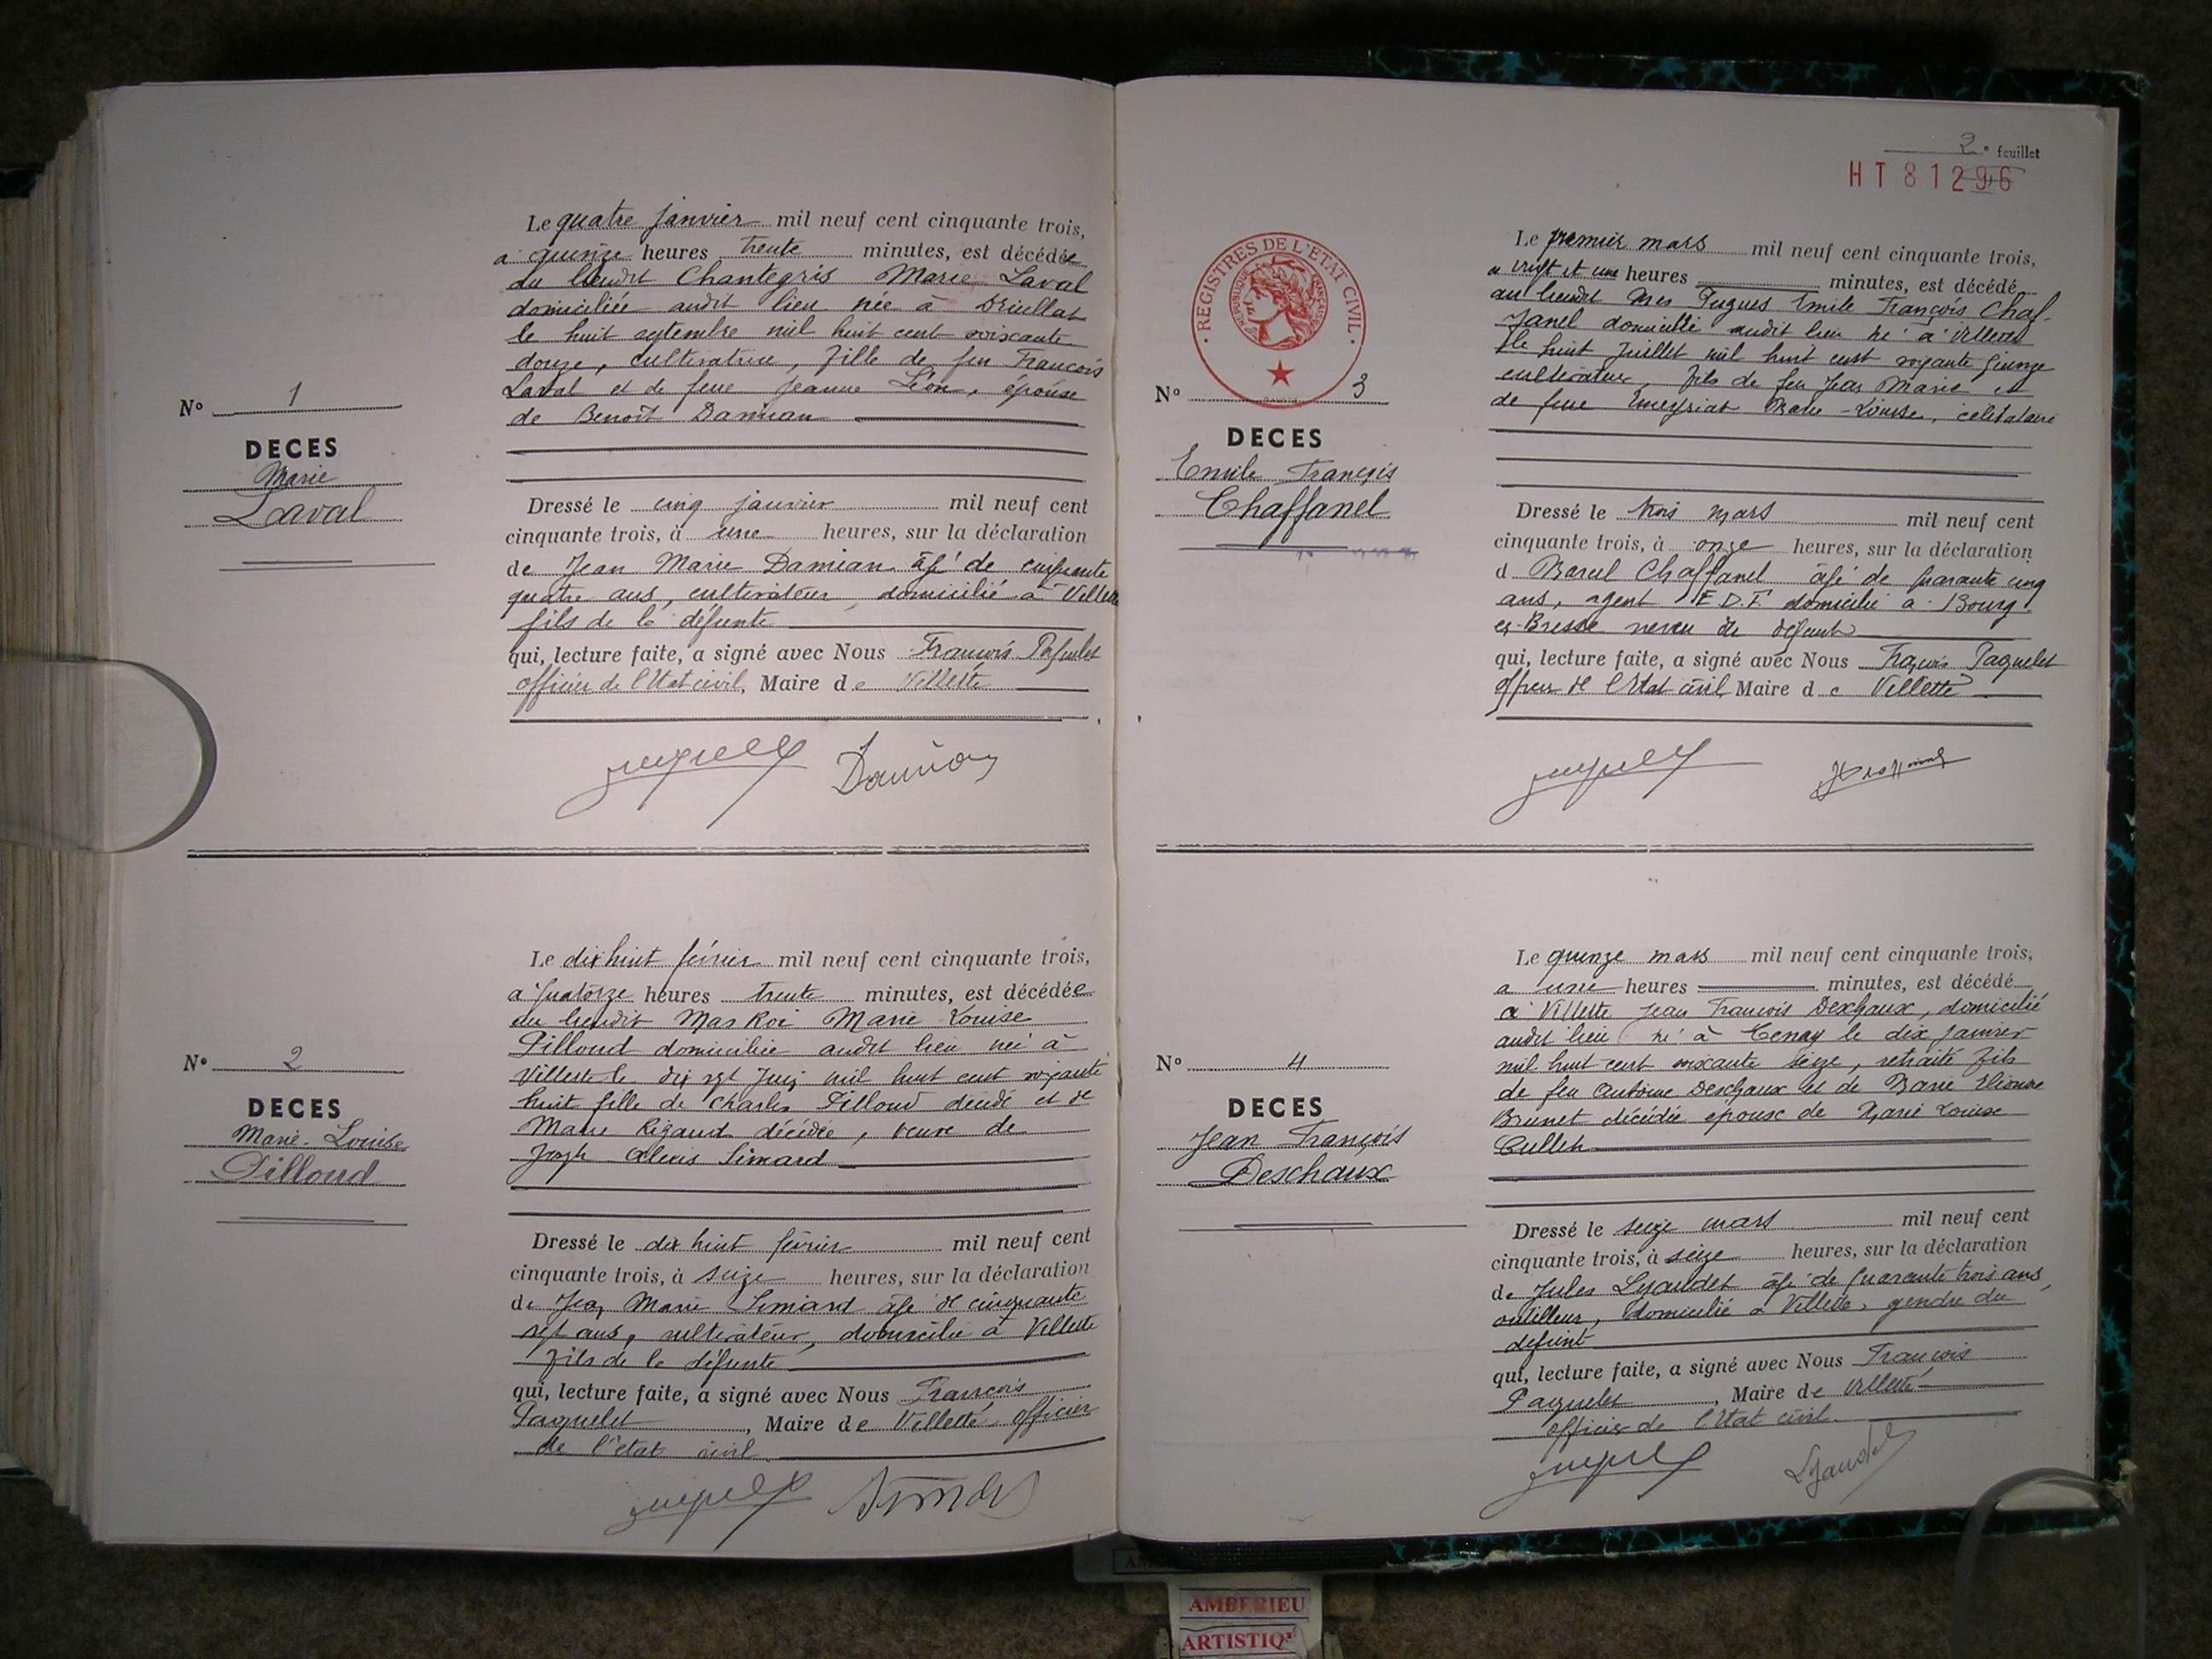 Le quatre janvier mil neuf cent cinquante trois,
a quinze heures trente minutes, est décédée
au lieudit Chantegris Marie Laval
domiciliée audit lieu née à Druillat
le huit septembre mil huit cent soixante
douze, cultivatrice, fille de feu François
Laval et de feue Jeanne Léon, épouse
de Benoît Damian
N° 1
DECES
Marie
Laval
Dressé le cinq janvier mil neuf cent
cinquante trois, à une heures, sur la déclaration
de Jean Marie Damian âgé de cinquante
quatre ans, cultivateur, domicilié à Villette
fils de la défunte
qui, lecture faite, a signé avec Nous François Paquelet
officier de l'Etat civil, Maire de Villette
Damian
Le dix huit février mil neuf cent cinquante trois,
a quatorze heures trente minutes, est décédée
au lieudit Mas Roi Marie Louise
Pilloud domiciliée audit lieu née à
Villette le dix sept Juin mil huit cent soixante
huit fille de Charles Pilloud décédé et de
Marie Rigaud décédée, veuve de
Joseph Alexis Simard
N° 2
DECES
Marie-Louise
Pilloud
Dressé le dix huit février mil neuf cent
cinquante trois, à seize heures, sur la déclaration
de Jean Marie Simard âgé de cinquante
sept ans, cultivateur, domicilié à Villette
fils de la défunte
qui, lecture faite, a signé avec Nous François
Paquelet, Maire de Villette officier
de l'état civil
2e feuillet
HT 81296
REGISTRES DE L'ETAT CIVIL
Le premier mars mil neuf cent cinquante trois,
a vingt et une heures minutes, est décédé
au lieudit Mas Pugues Emile François Chaf-
fanel domicilié audit lieu né à Villette
le huit Juillet mil huit cent soixante quinze
cultivateur, fils de feu Jean Marie et
de feue Marie-Louise, célibataire
N° 3
DECES
Emile François
Chaffanel
Dressé le trois mars mil neuf cent
cinquante trois, à onze heures, sur la déclaration
d Marcel Chaffanel âgé de quarante cinq
ans, agent E.D.F. domicilié à Bourg
en-Bresse neveu du défunt
qui, lecture faite, a signé avec Nous François Paquelet
officier de l'Etat civil Maire de Villette
Le quinze mars mil neuf cent cinquante trois,
a une heures minutes, est décédé
à Villette Jean François Deschaux, domicilié
audit lieu né à Tenay le dix janvier
mil huit cent soixante seize, retraité fils
de feu Antoine Deschaux et de Marie Eléonore
Brunet décédée épouse de Marie Louise
Cullet
N° 4
DECES
Jean François
Deschaux
Dressé le seize mars mil neuf cent
cinquante trois, à seize heures, sur la déclaration
de Jules Lyaudet âgé de quarante trois ans,
outilleur, domicilié à Villette, gendre du
défunt
qui, lecture faite, a signé avec Nous François
Paquelet, Maire de Villette
officier de l'Etat civil.
Lyaudet
AMBERIEU
ARTISTIQ